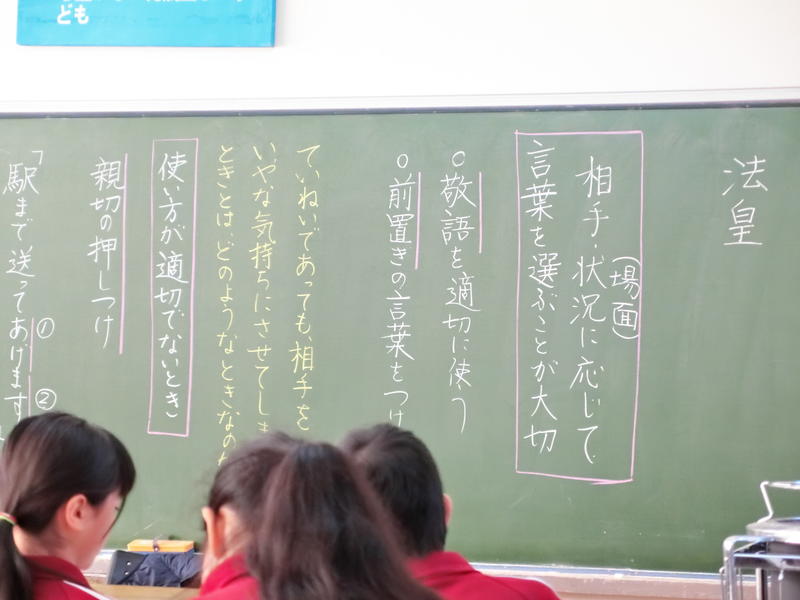 法皇
相手・状況に応じて
(場面)
言葉を選ぶことが大切
○敬語を適切に使う
○前置きの言葉をつけ
ていねいであっても、相手を
いやな気持ちにさせてしま
ときとは、どのようなときなの
使い方が適切でないとき
親切の押しつけ
①
②
「駅まで送ってあげます
ども